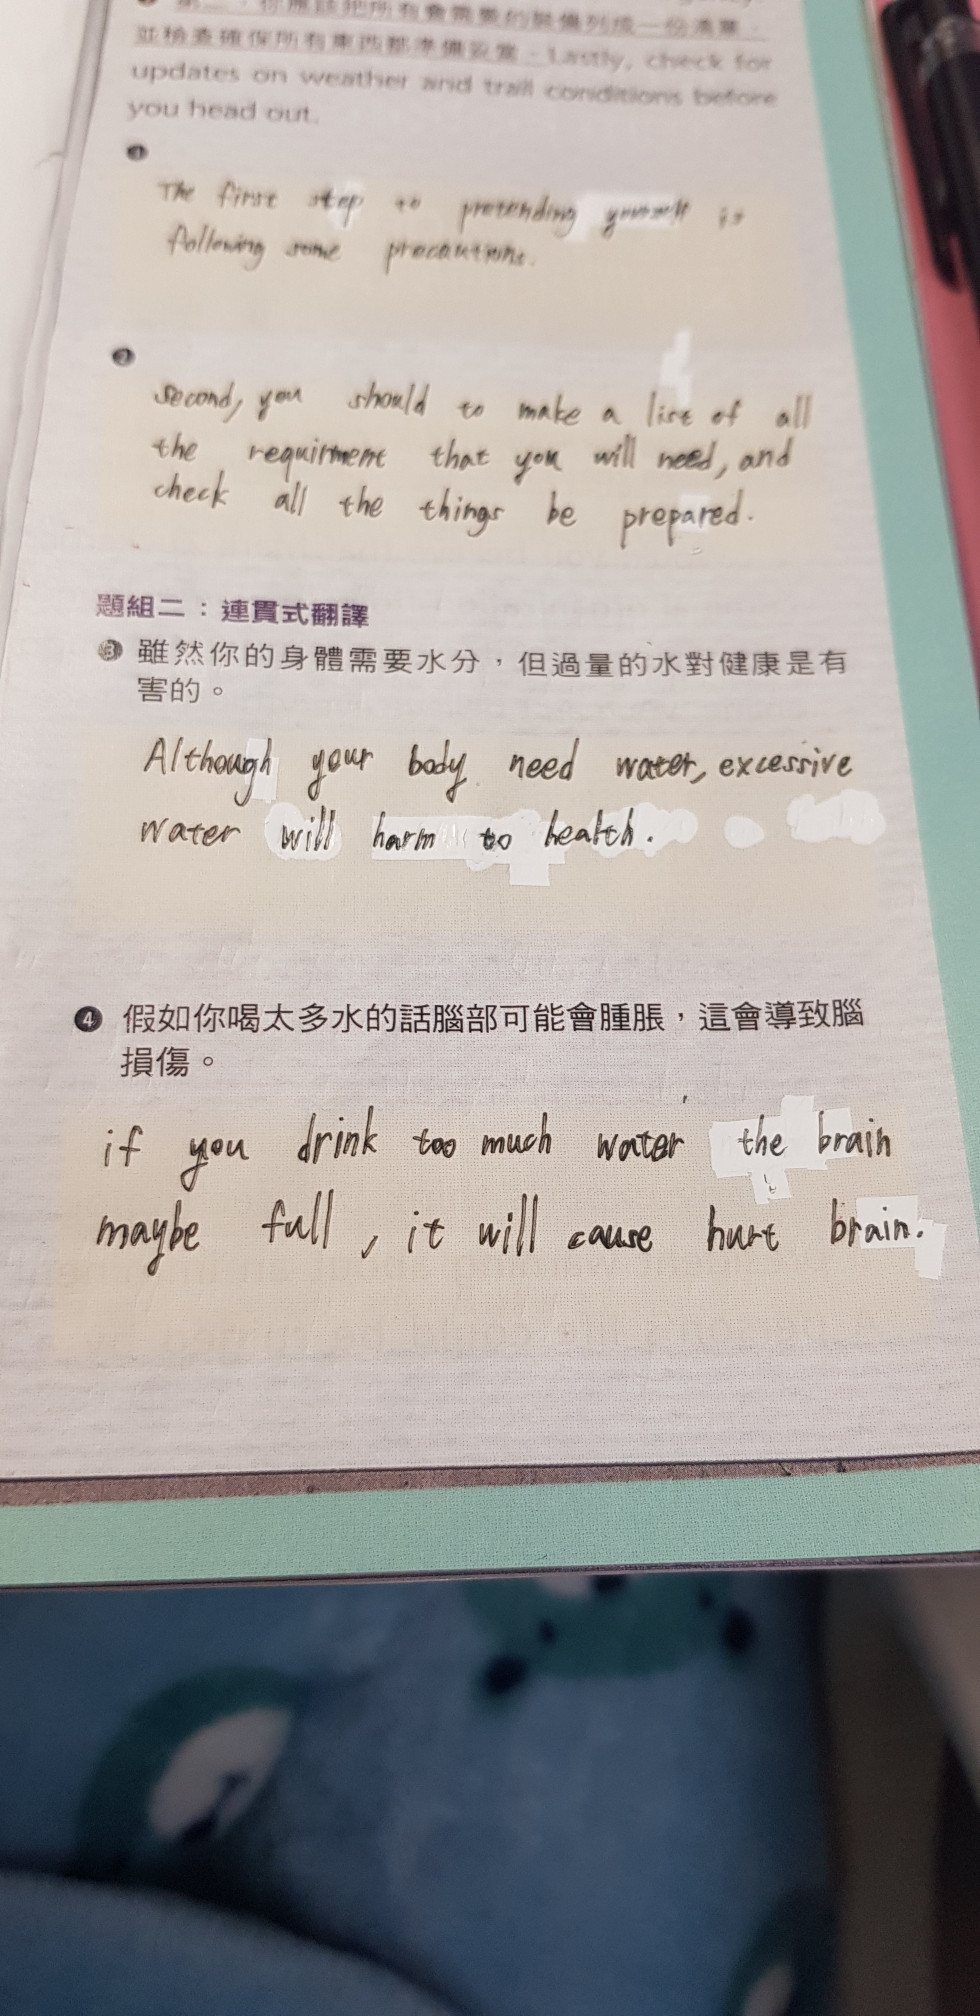 第二，你應該把所有會需要的裝備列成一份清單，
並檢查確保所有東西都準備妥當。Lastly, check for
updates on weather and trail conditions before
you head out.
❶
The first step to pretending yourself is
following some precautions.
❷
Second, you should to make a list of all
the requirtment that you will need, and
check all the things be prepared.
題組二：連貫式翻譯
❸ 雖然你的身體需要水分，但過量的水對健康是有
害的。
Although your body need water, excessive
water will harm to health.
❹ 假如你喝太多水的話腦部可能會腫脹，這會導致腦
損傷。
if you drink too much water the brain
maybe full, it will cause hurt brain.